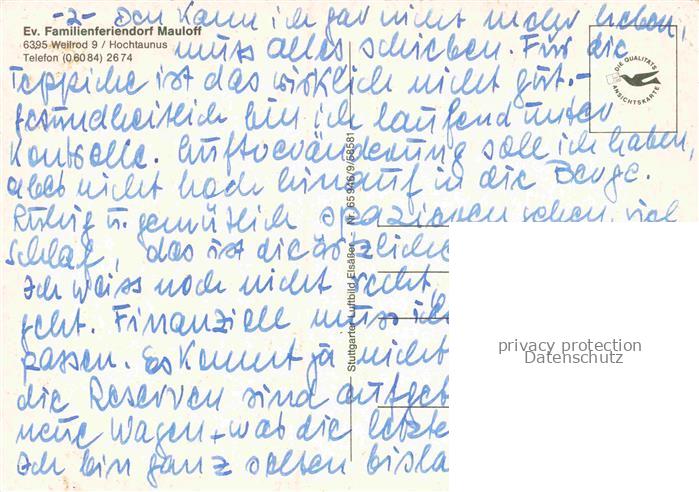 -2- Den kann ich gar nicht mehr heben,
Ev. Familienferiendorf Mauloff
6395 Weilrod 9 / Hochtaunus
Telefon (0 60 84) 26 74
muss alles schieben. Für die
Teppiche ist das wirklich nicht gut. -
gesundheitlich bin ich laufend unter
Kontrolle. Luftveränderung soll ich haben,
aber nicht hoch hinauf in die Berge.
Ruhig u. gemütlich spazieren gehen, viel
Schlaf, das ist die ärztliche
Ich weiss noch nicht recht,
geht. Finanziell muss ich
passen. Es kommt ja nicht
die Reserven sind aufgeb
neue Wagen + was die letzte
Ich bin ganz selten bisla
DIE QUALITÄTS
ANSICHTSKARTE
Stuttgarter Luftbild Elsäßer - Nr. 65946/9/58581
privacy protection
Datenschutz